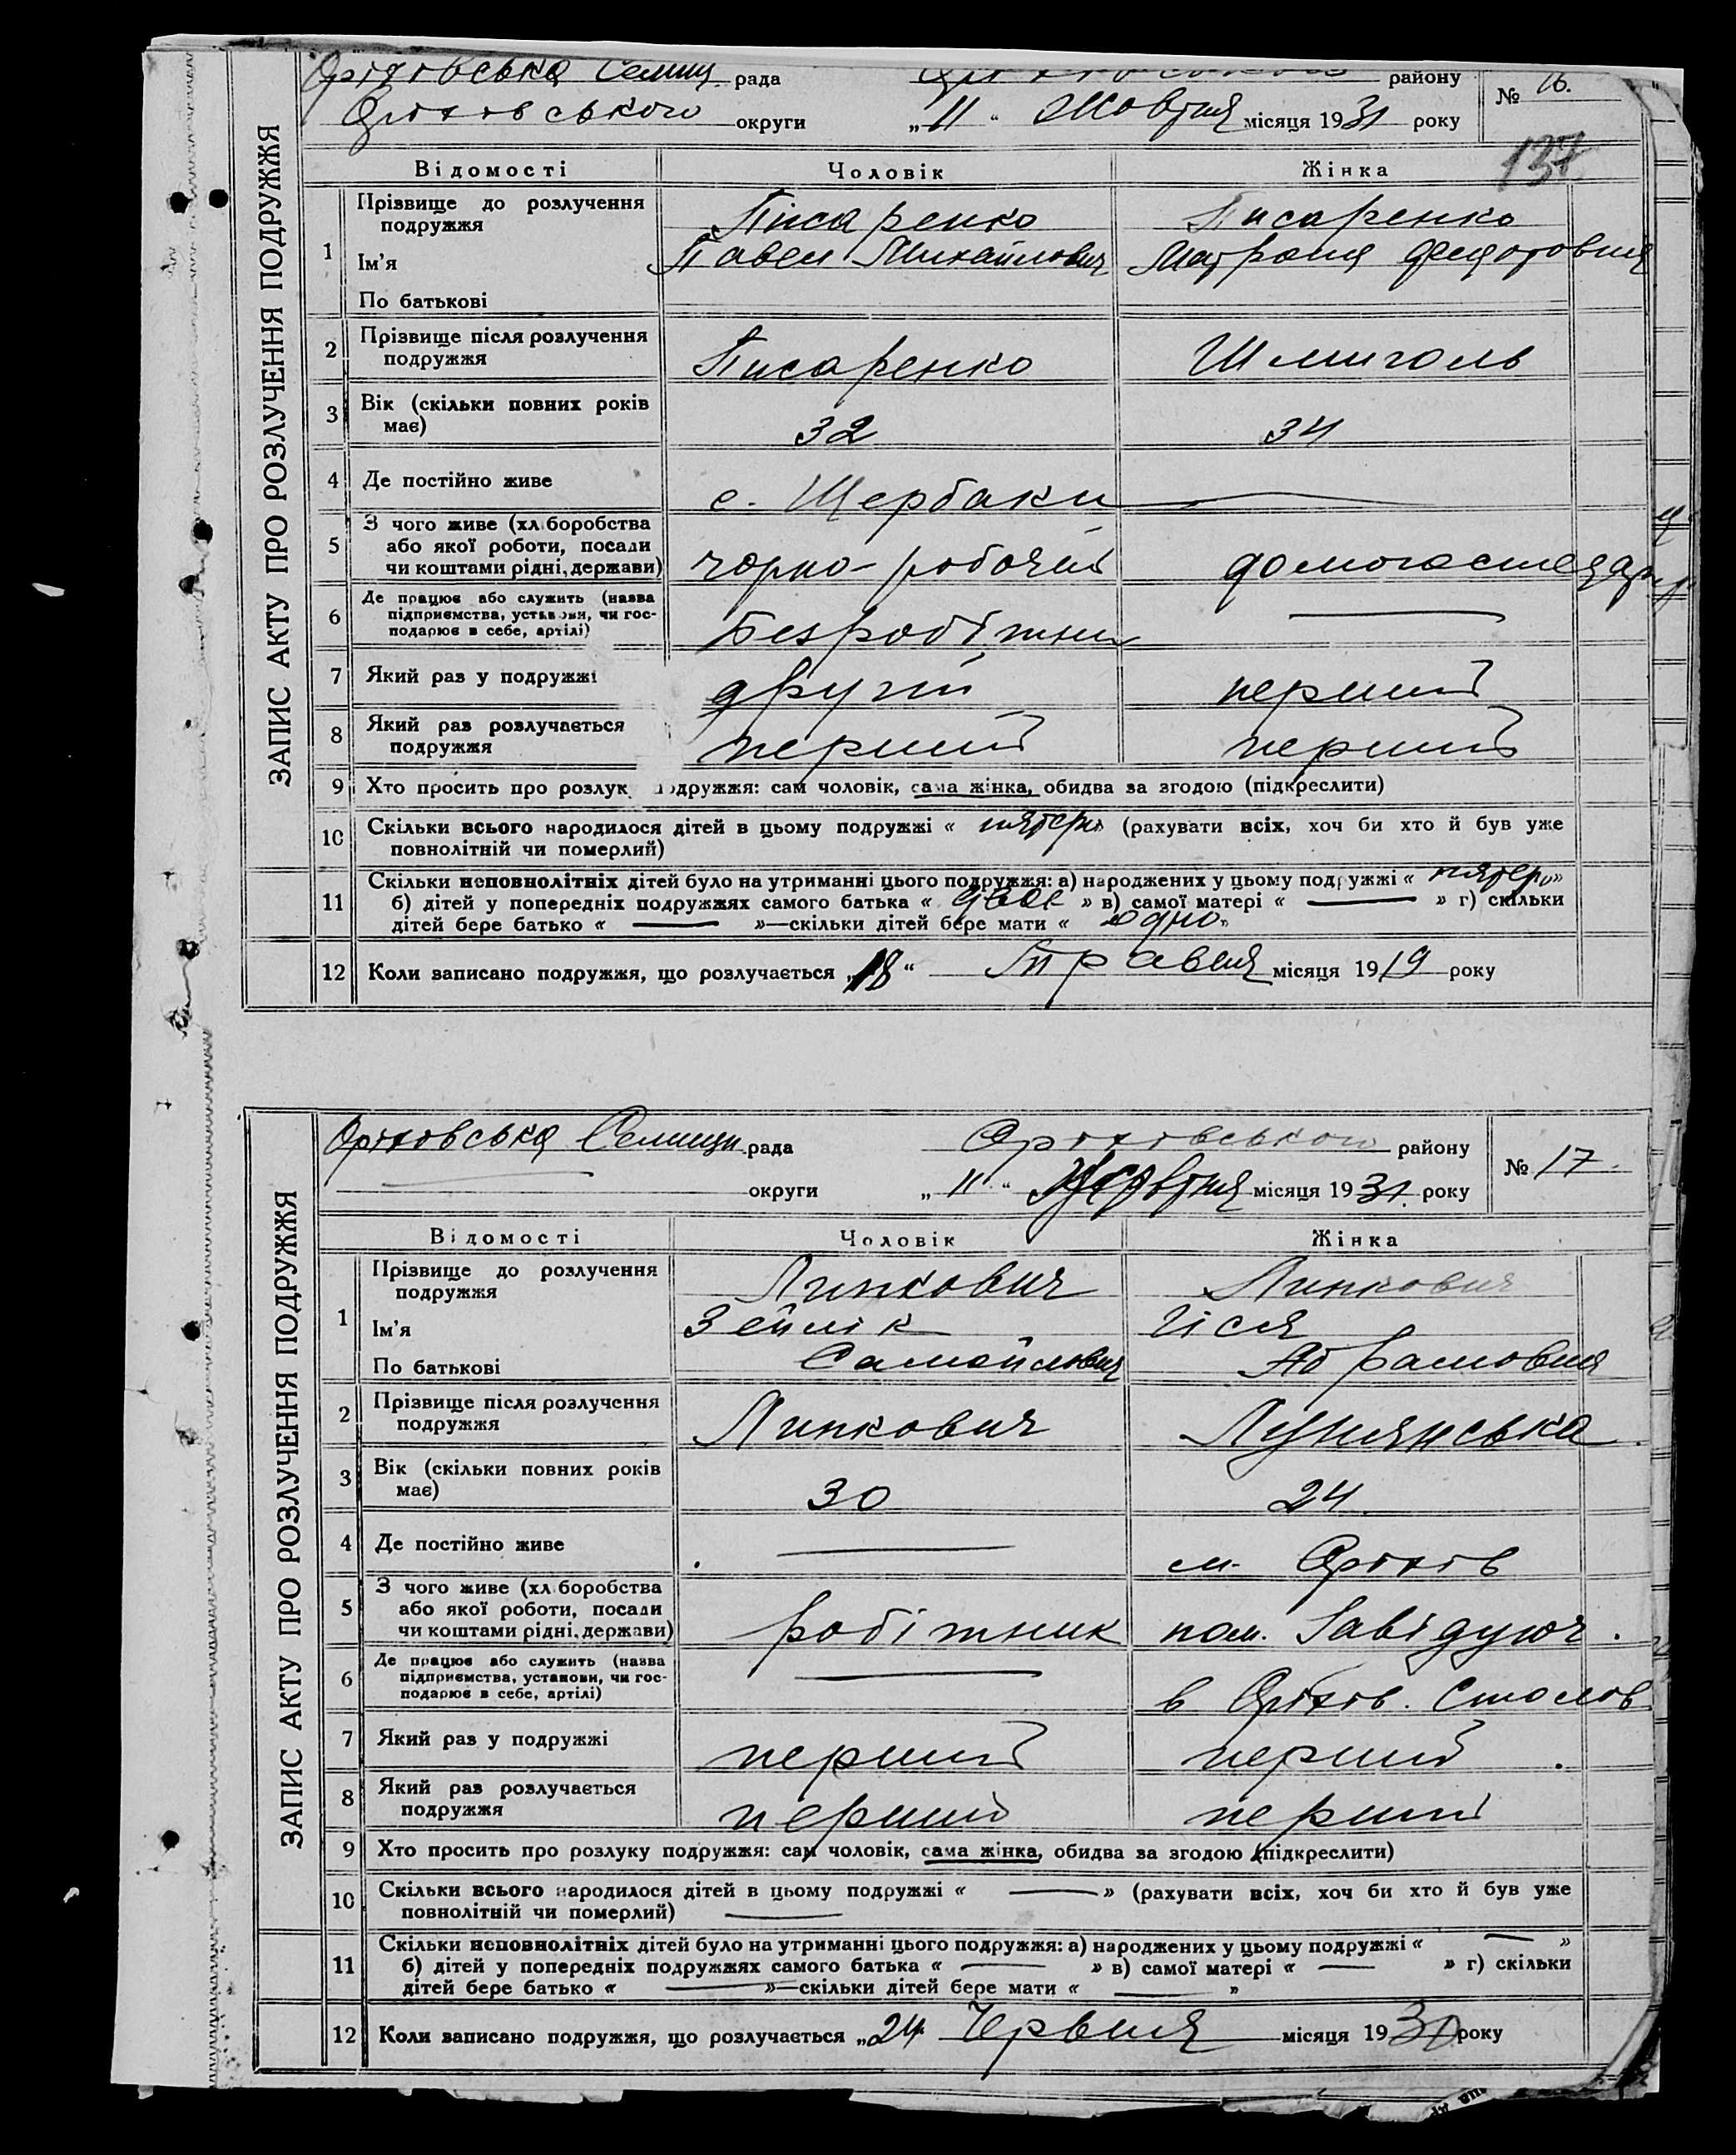 Оріховська Селищ. рада району № 16.
Оріховського округи „11“ Жовтня місяця 1931 року
137
ЗАПИС АКТУ ПРО РОЗЛУЧЕННЯ ПОДРУЖЖЯ
Відомості Чоловік Жінка
1 Прізвище до розлучення подружжя Писаренко Писаренко
Ім’я Павел Михайлович Матрона Федотовна
По батькові
2 Прізвище після розлучення подружжя Писаренко Шмиголь
3 Вік (скільки повних років має) 32 34
4 Де постійно живе с. Щербаки —
5 З чого живе (хліборобства
або якої роботи, посади
чи коштами рідні, держави) чорно-робочий
6 Де працює або служить (назва
підприємства, установи, чи гос-
подарює в себе, артілі) Безробітний —
7 Який раз у подружжі другий перший
8 Який раз розлучається подружжя перший перший
9 Хто просить про розлук подружжя: сам чоловік, сама жінка, обидва за згодою (підкреслити)
10 Скільки всього народилося дітей в цьому подружжі « пятеро » (рахувати всіх, хоч би хто й був уже
повнолітній чи померлий)
11 Скільки неповнолітніх дітей було на утриманні цього подружжя: а) народжених у цьому подружжі « пятеро »
б) дітей у попередніх подружжях самого батька « двоє » в) самої матері « — » г) скільки
дітей бере батько « — »—скільки дітей бере мати « одно »
12 Коли записано подружжя, що розлучається „18“ Травня місяця 1919 року
Оріховська Селищн. рада Оріховського району № 17.
округи „11“ місяця 1931. року
ЗАПИС АКТУ ПРО РОЗЛУЧЕННЯ ПОДРУЖЖЯ
Відомості Чоловік Жінка
1 Прізвище до розлучення подружжя Липкович Липкович
Ім’я Зейлік Гіся
По батькові Самойлович Абрамовна
2 Прізвище після розлучення подружжя Липкович
3 Вік (скільки повних років має) 30 24
4 Де постійно живе — м. Оріхів
5 З чого живе (хліборобства
або якої роботи, посади
чи коштами рідні, держави) робітник пом. Завідуюч.
6 Де працює або служить (назва
підприємства, установи, чи гос-
подарює в себе, артілі) — в Оріхів. Столов
7 Який раз у подружжі перший перший
8 Який раз розлучається подружжя перший перший
9 Хто просить про розлуку подружжя: сам чоловік, сама жінка, обидва за згодою (підкреслити)
10 Скільки всього народилося дітей в цьому подружжі « — » (рахувати всіх, хоч би хто й був уже
повнолітній чи померлий) —
11 Скільки неповнолітніх дітей було на утриманні цього подружжя: а) народжених у цьому подружжі « — »
б) дітей у попередніх подружжях самого батька « — » в) самої матері « — » г) скільки
дітей бере батько « — »—скільки дітей бере мати « — »
12 Коли записано подружжя, що розлучається „24“ Червня місяця 1930 року